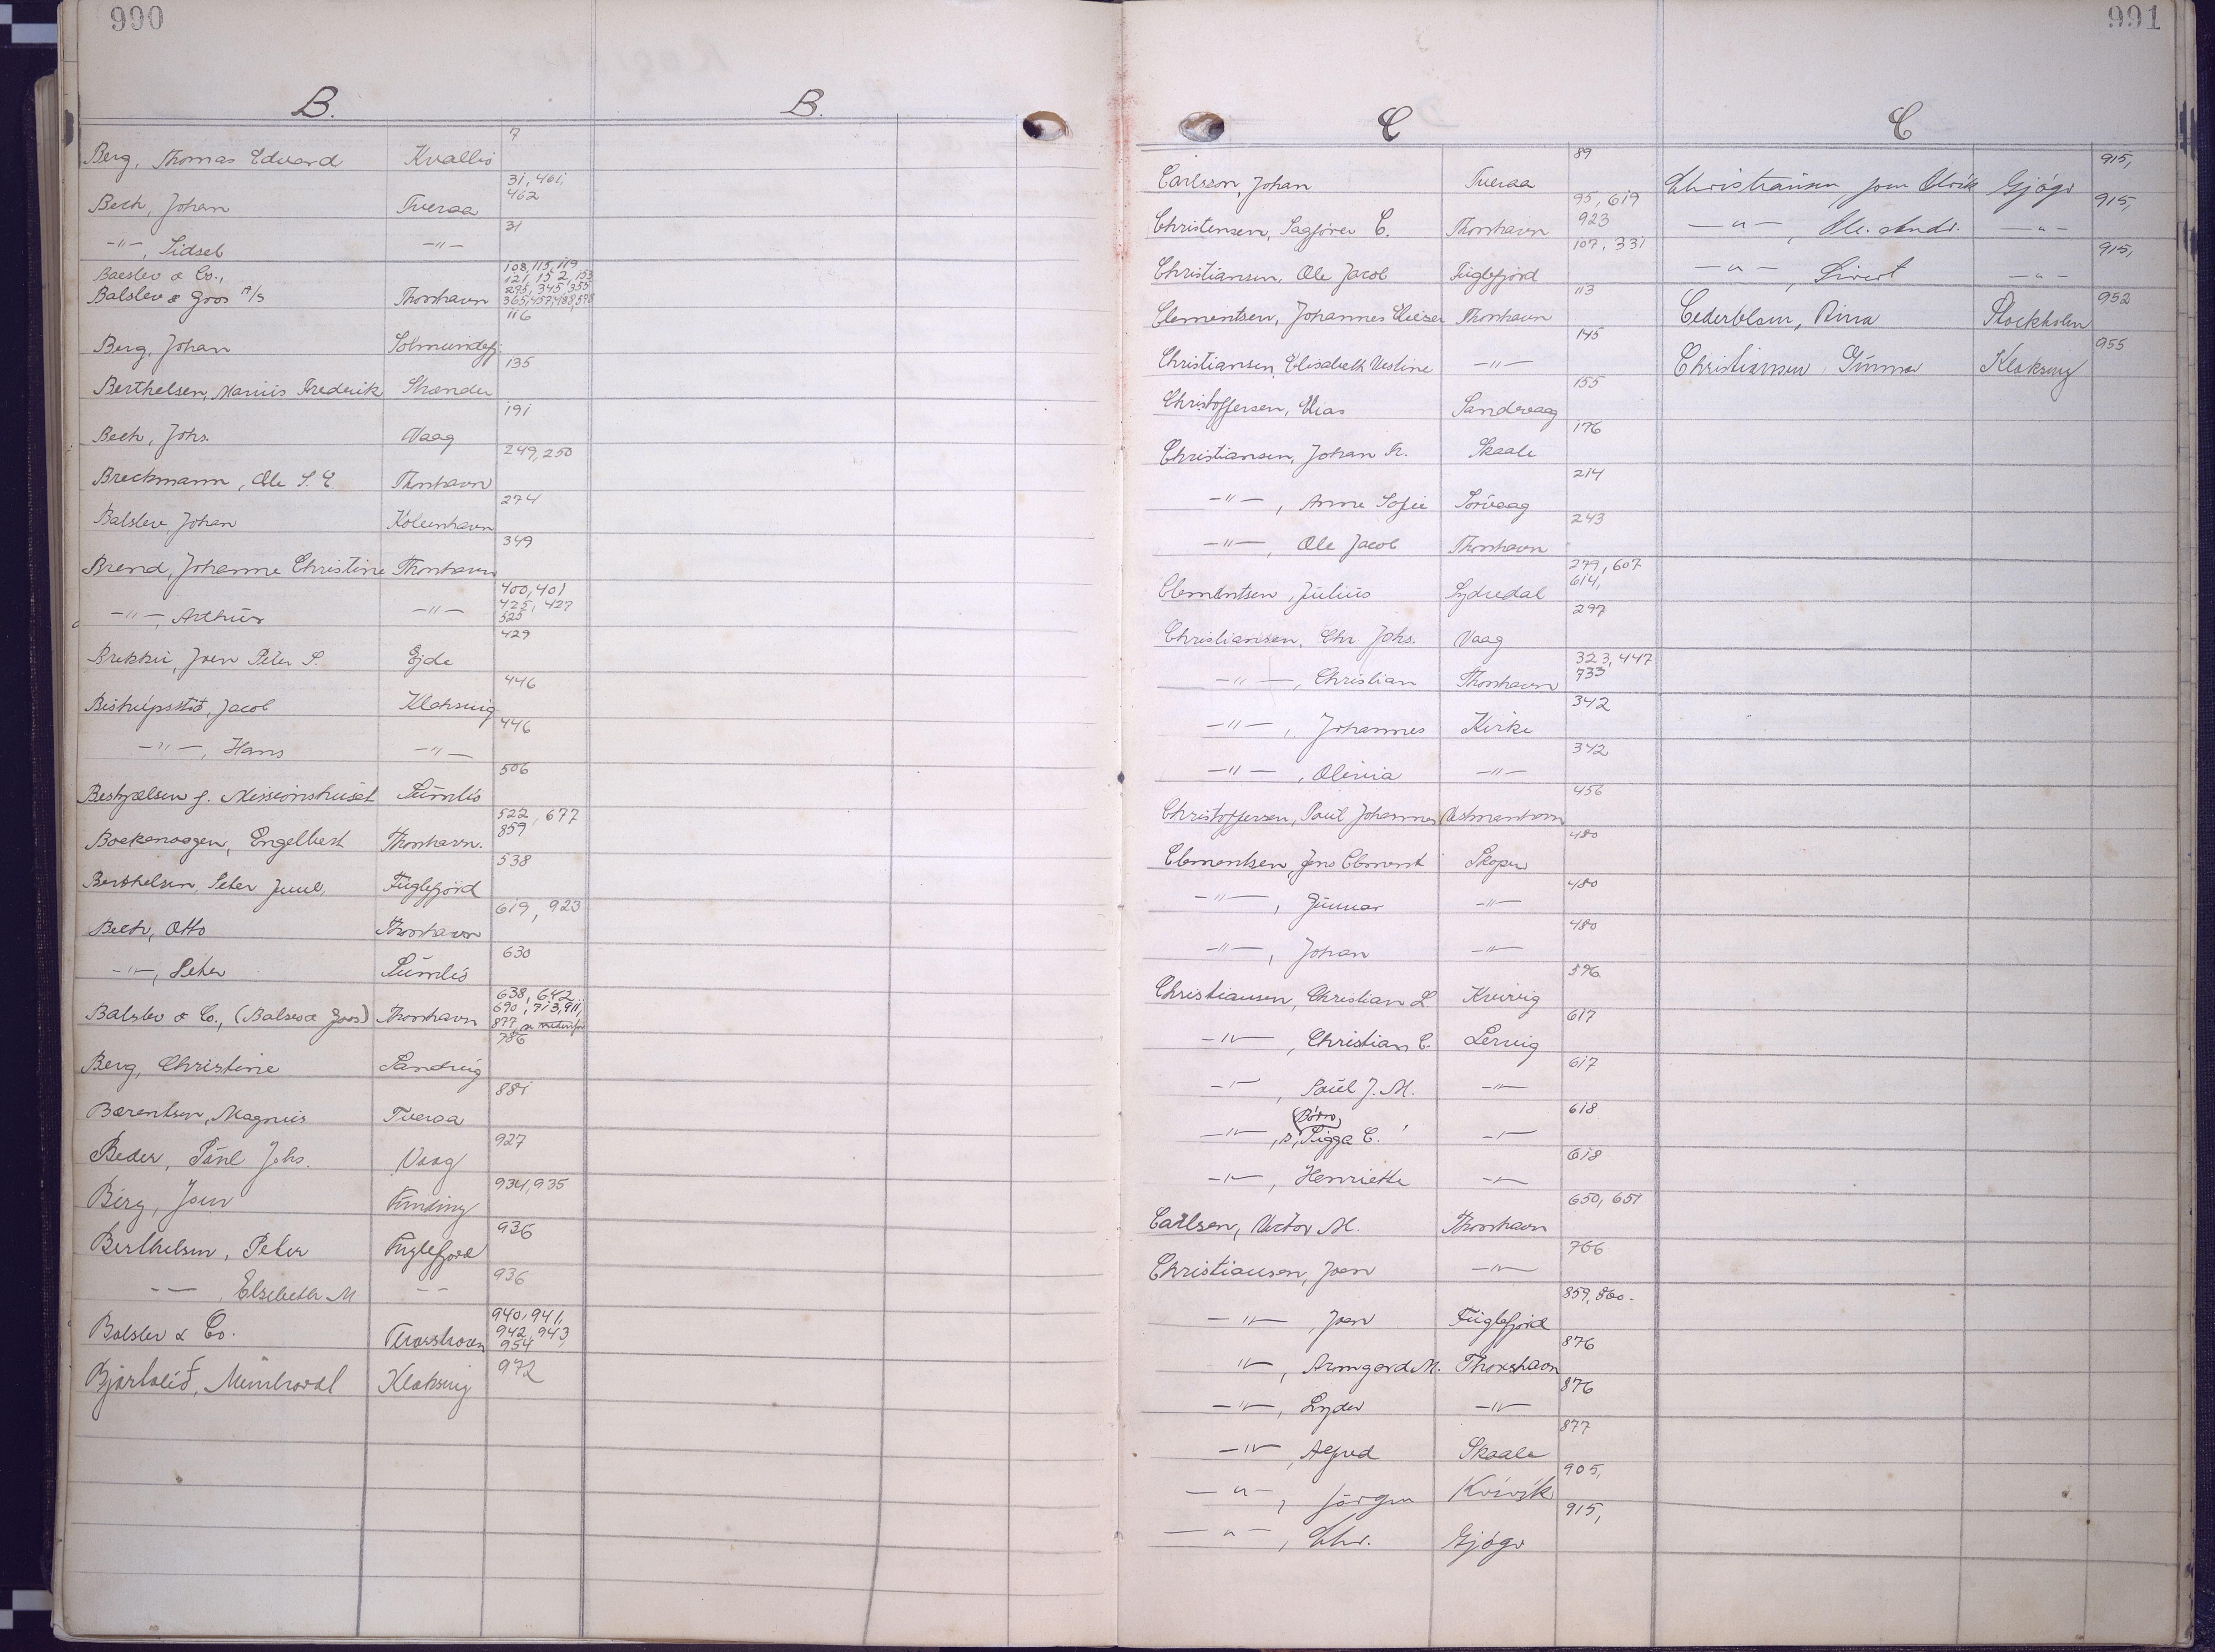 990
B.
B.
Berg, Thomas Edvard Kvalbø 7
Bech, Johan Tveraa 31, 461, 462
-"-, Sidsel -"- 31
Balslev & Co.,
Balslev & Goos A/S Thorshavn 108, 115, 119 121, 152, 153 295, 345, 355 365, 457, 488, 598
Berg, Johan Solmundefj. 116
Berthelsen, Marius Frederik Strender 135
Bech, Johs. Vaag 191
Breckmann, Ole S. E. Thorshavn 249, 250
Balslev, Johan København 274
Brend, Johanne Christine Thorshavn 349
-"-, Arthur -"- 400, 401 425, 427 525
Brekku, Joen Peter S. Ejde 429
Biskupsstið, Jacob Klaksvig 446
-"-, Hans -"- 446
Bestyrelsen f. Missionshuset Sumbø 506
Bockenoogen, Engelbert Thorshavn. 522, 677 859
Berthelsen, Peter Juul, Fuglefjord 538
Bech, Otto Thorshavn 619, 923
-"-, Peter Sumbø 630
Balslev & Co., (Balslev & Goos) Thorshavn 638, 642 690, 713, 911, 877,
Berg, Christine Sandvig 786
Bærentsen, Magnus Tveraa 881
Beder, Pául Johs. Vaag 927
Berg, Joen Funding 934, 935
Berthelsen, Peter Fuglefjord 936
- -, Elsebeth M - - 936
Balslev & Co. Thorshavn 940, 941, 942, 943, 954
Bjartalíð, Klaksvig 972
991
C
C
Carlsson, Johan Tveraa 89
Christensen, Sagfører C. Thorshavn 95, 619 923
Christiansen, Ole Jacob Fuglefjord 107, 331
Clementsen, Johannes Elieser Thorshavn 113
Christiansen, Elisabeth Vestine -"- 145
Christoffersen, Elias Sandvaag 155
Christiansen, Johan Kr. Skaale 176
-"-, Anne Sofie Sörvaag 214
-"-, Ole Jacob Thorshavn 243
Clementsen, Julius Sydredal 279, 607 614,
Christiansen, Chr Johs. Vaag 297
-"-, Christian Thorshavn 323, 447 733
-"-, Johannes Kirke 342
-"-, Olivia -"- 342
Christoffersen, Poul Johannes Vestmanhavn 456
Clementsen, Jens Clement Skopen 480
-"-, Gunnar -"- 480
-"-, Johan -"- 480
Christiansen, Christian L. Kvivig 596
-"-, Christian C. Lervig 617
-"-, Poul J. M. -"- 617
-"-, s, Sigga C. -"- 618
(Börn)
-"-, Henriette -"- 618
Carlsen, Victor M. Thorshavn 650, 651
Christiansen, Joen -"- 766
-"-, Joen Fuglefjord 859, 860.
-"-, Armgard M. Thorshavn 876
-"-, Lyder -"- 876
-"-, Alfred Skaale 877
-"-, Jörgen Kvívík 905,
-"-, Chr. Gjógv 915,
Christiansen, Joen Elvik Gjógv 915,
-"-, Ole Andr. -"- 915,
-"-, Sivert -"- 915,
Cederblom, Stockholm 952
Christiansen Gunnar Klaksvig 955